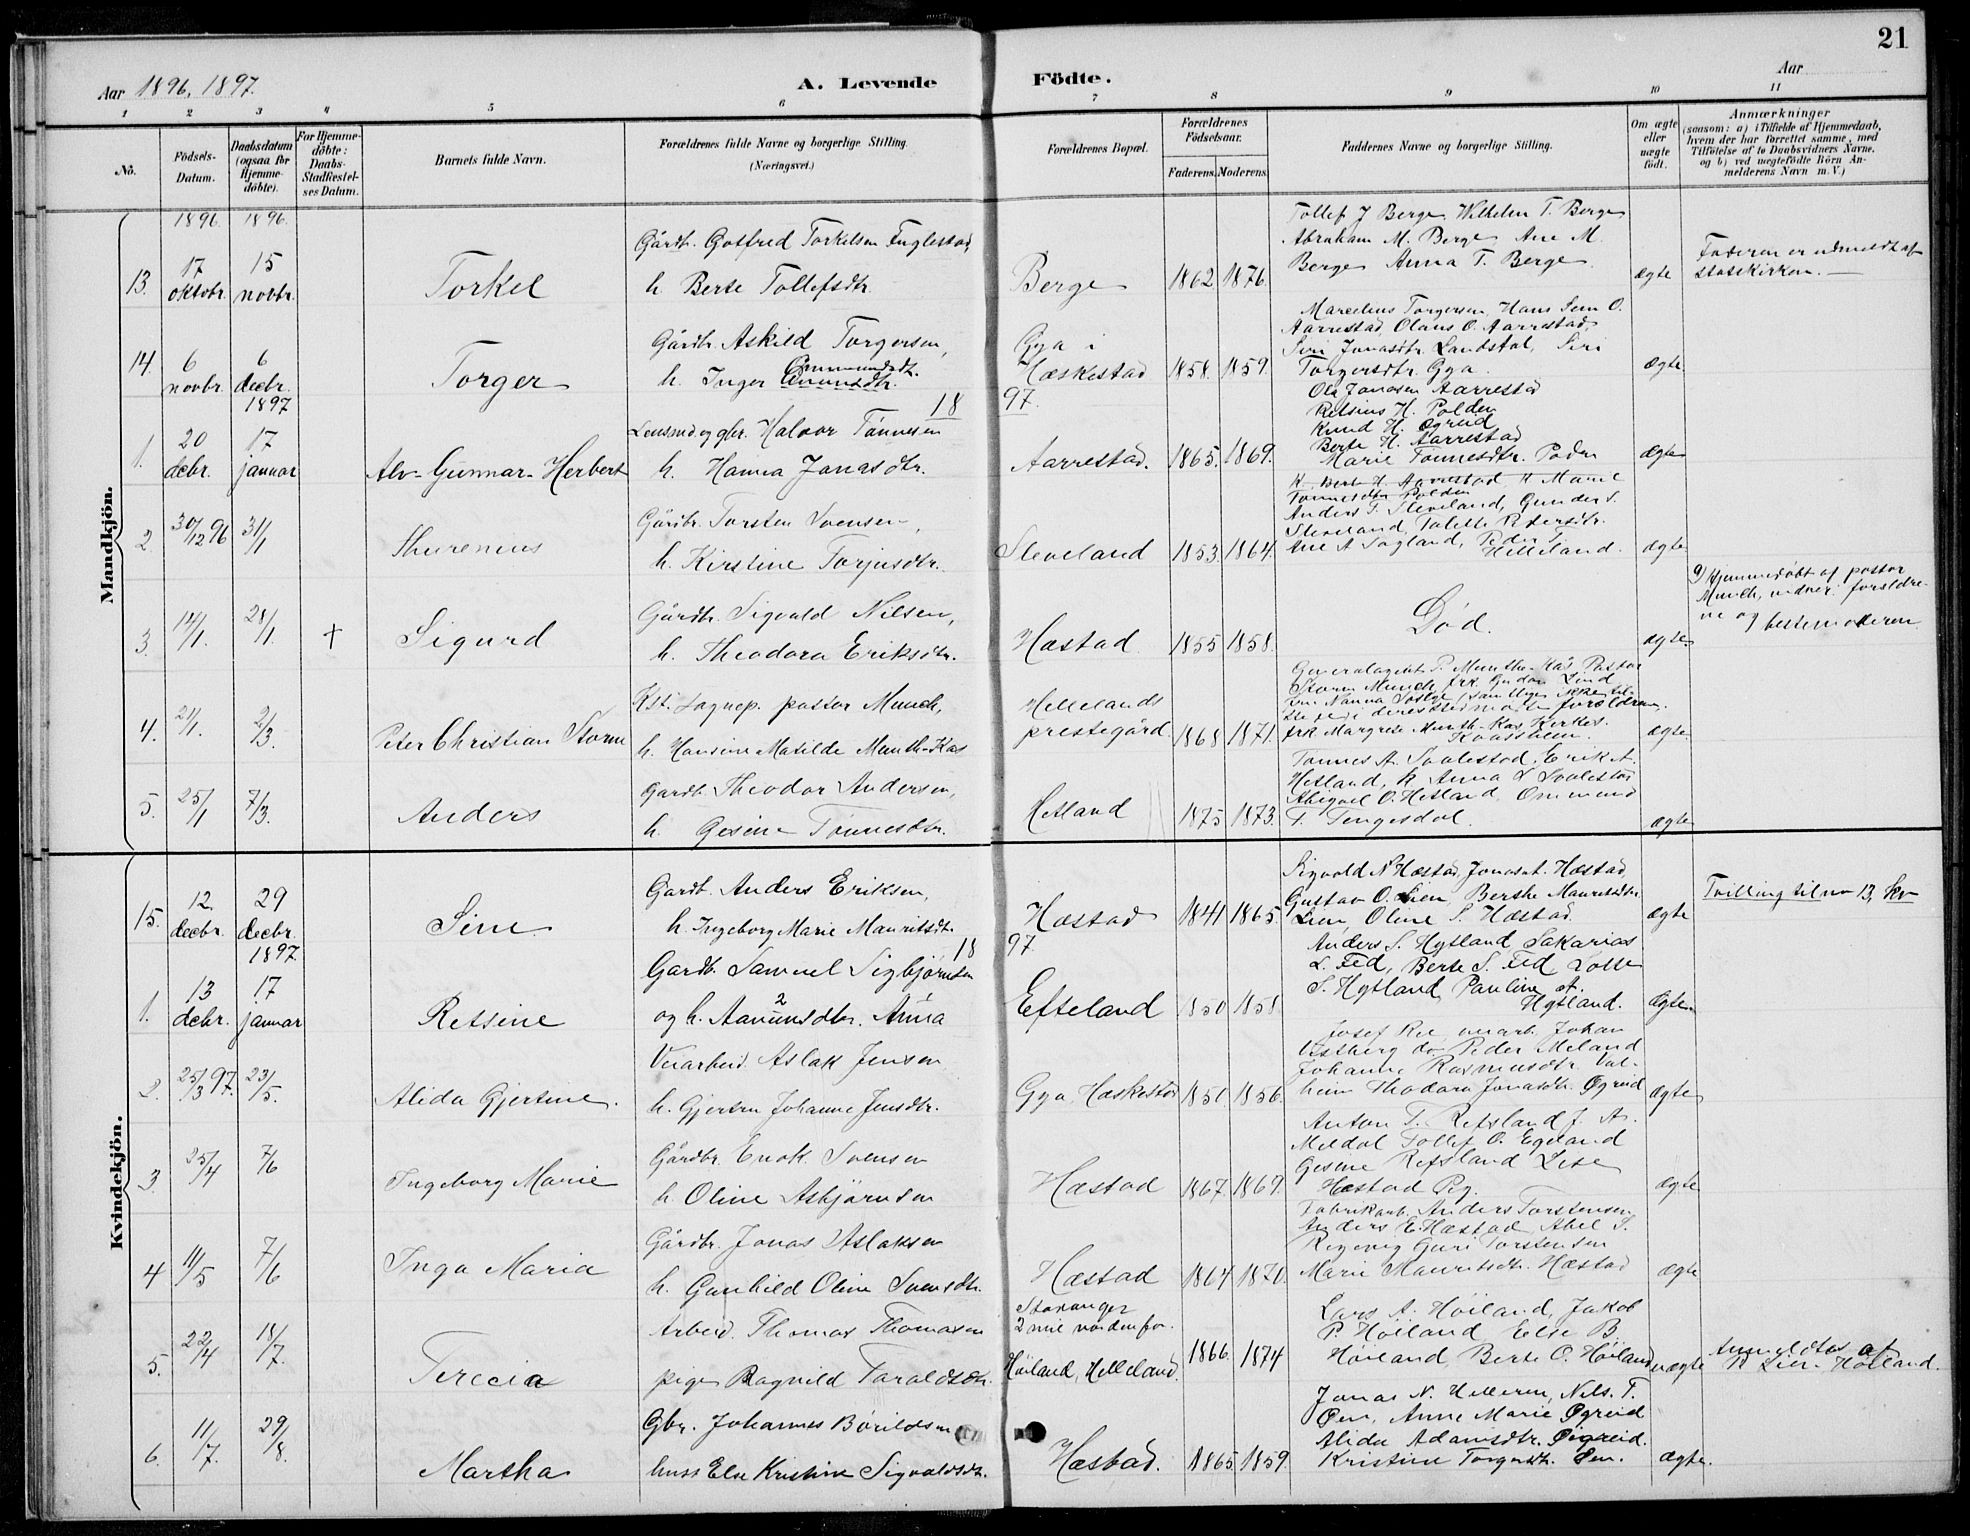 21
Aar 1896, 1897.
A. Levende Födte.
Aar
1 2 3 4 5 6 7 8 9 10 11
No.
Födsels-Datum.
Daabsdatum (ogsaa for Hjemmedöbte).
For Hjemmedöbte: Daabs-Stadfæstelses Datum.
Barnets fulde Navn.
Forældrenes fulde Navne og borgerlige Stilling.
(Næringsvei.)
Forældrenes Bopæl.
Forældrenes Födselsaar.
Faderens. Moderens.
Faddernes Navne og borgerlige Stilling.
Om ægte eller uægte födt.
Anmærkninger
(saasom: a) i Tilfælde af Hjemmedaab, hvem der har forrettet samme, med Tilföielse af to Daabsvidners Navne, og b) ved uægtefödte Börn Anmelderens Navn m. V.)
Mandkjön.
1896 1896.
13. 17 oktobr. 15 novbr.
Torkel
Gårdb. Gotfred Torkelsen Fuglestad,
h. Berte Tollefsdtr.
Berge
1862 1876.
Tollef J Berge, Wilhelm T. Berge
Abraham M. Berge Ane M.
Berge Anna T. Berge.
ægte
Faderen er udmeldt af
statskirken.
14. 6 novbr. 6 decbr.
Torger
Gårdb. Askild Torgersen,
h. Inger Ommundsdt.
Gya i
Hæskestad
1858. 1859.
Marcelius Torgersen, Hans Sem O.
Aarrestad, Olaus O. Aarrestad,
Siri Jonasdtr. Landstal, Siri
Torgersdtr. Gya.
ægte
1897
18 97.
1. 20 decbr. 17 januar
Alv-Gunnar-Herbert
Lensmd. og gbr. Halvor Tønnesen
h. Hanna Jonasdtr.
Aarrestad.
1865. 1869.
Ola Jonasen Aarrestad
Retsius H. Polden
Knud H. Øgreid
Berte H. Aarrestad
Marie Tønnesdtr. Polden
ægte
2 30/12 96 31/1
Thurenius
Gårdbr. Torsten Svensen,
h. Kirstine Torjusdtr.
Sleveland
1853. 1864.
K. Berte H. Aarrestad H Marie
Tønnesdtr Polden
Anders T. Sleveland, Gunder S.
Sleveland, Talette Petersdtr.
Ane A Sagland, Peder T.
Helleland.
ægte
3. 14/1. 28/1. +
Sigurd
Gårdbr. Sigvald Nilsen,
h. Theodora Eriksdtr.
Hæstad
1855 1858.
Død.
ægte
a) Hjemmedøbt af pastor
Munch, vidner: forældre-
ne og bestemoderen
4. 21/1. 2/3.
Peter Christian Storm
Kst. Sognep. pastor Munch,
h. Hansine Matilde Munthe-Kas
Hellelands
prestegård
1868 1871.
Generalagent P. Munthe-Kas, Pastor
Storm Munch, frk. Gudon Lind
frk Margrete Munth-Kas Kirkes.
ægte.
5. 25/1 7/3.
Anders
Gardb. Theodor Andersen,
h. Gesine Tønnesdtr.
Hetland
1875 1873.
Tønnes A. Svalestad, Erik A.
Hetland, k Anna L Svalestad
Abigael O. Hetland, Ommund
T. Tengesdal.
ægte
Kvindekjön.
15. 12. decbr. 29 decbr.
Sine
Gardb. Anders Eriksen,
h. Ingeborg Marie Mauritsdt.
Hæstad
1841 1865.
Sigvald N Hæstad, Jonas A. Hæstad,
Gustav O. Lien, Berthe Mauritsdtr.
Lien, Oline S. Hæstad.
ægte
Tvilling til no 13, kv
1897
18 97
1. 13 decbr. 17 januar
Retsine
Gardb. Samuel Sigbjørnsen
og h. Aanunsdtr. 2 Anna 1
Efteland
1850 1858.
Anders S. Hytland Sakarias
L. Fed, Berte S. Fed Lotte
S. Hytland, Pauline A.
Hytland.
Ægte
2. 25/3 97. 23/5.
Alida Gjertine.
Veiarbeid. Aslak Jensen
h. Gjertru Johanne Jensdtr.
Gya, Hæskestad
1851 1856.
Josef Ree veiarb. Johan
Vestberg do. Peder Meland
Johanne Rasmusdtr. Val-
heim Thodora Jonasdtr. Øgreid
ægte
3. 25/4 7/6
Ingeborg Marie
Gårdbr. Enok Svensen
h. Oline Asbjørnsen
Hæstad
1867 1869.
Anton T. Refsland J. A.
Meldal Tollef O. Egeland
Gesine Refsland Lise
Hæstad Pig.
ægte
4 11/5 7/6
Inga Maria
Gårdbr. Jonas Aslaksen
h. Gunhild Oline Svensdtr.
Hæstad
1864 1870.
Fabrikarb. Anders Torstensen
Anders E. Hæstad, Abel S.
Regevig Guri Torstensen
Marie Mauritsdtr. Hæstad
ægte
5. 22/4 18/7.
Terecia
Arbeid. Thomas Thomasen
pige Ragnild Taraldsdtr.
Stavanger
2 mil nordenfor.
Høiland, Helleland.
1866. 1874
Lars A. Høiland, Jakob
P. Høiland, Else B.
Høiland, Berte O. Høiland
uægte
Anmeldtes af
R Lien Høiland.
6. 11/7. 29/8.
Martha
Gbr. Johannes Bøvildsen
huss Else Kristine Sigvaldsdt.
Hæstad.
1865 1859.
Jonas N. Helleren, Nels. T.
Øen, Anne Marie Øgreid
Alida Adamsdtr. Øigreid.
Kristine Torgersdt. Øen.
ægte.